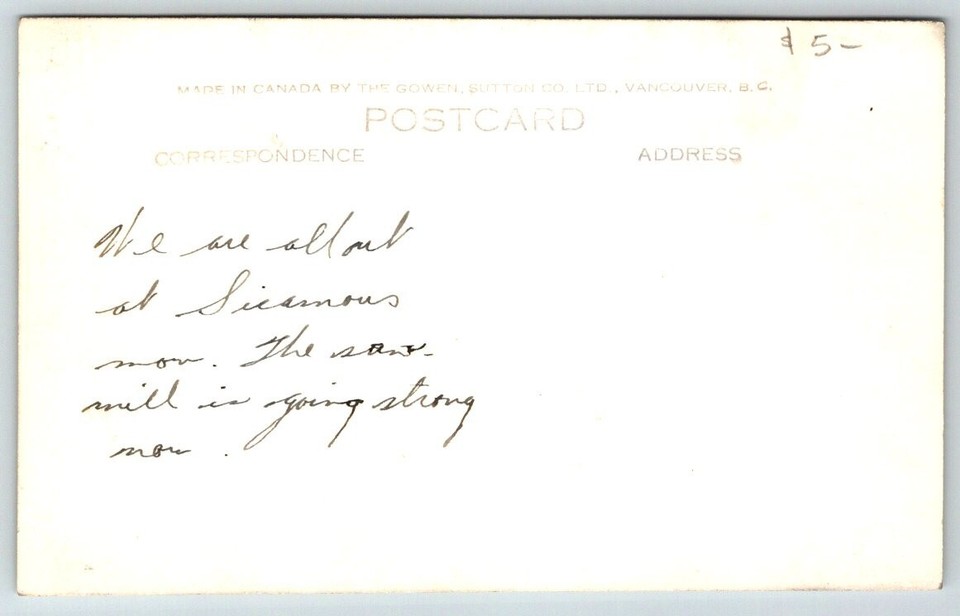 $5-
MADE IN CANADA BY THE GOWEN, SUTTON CO. LTD., VANCOUVER, B.C.
POSTCARD
CORRESPONDENCE ADDRESS
We are all out
at Sicamous
now. The saw-
mill is going strong
now.